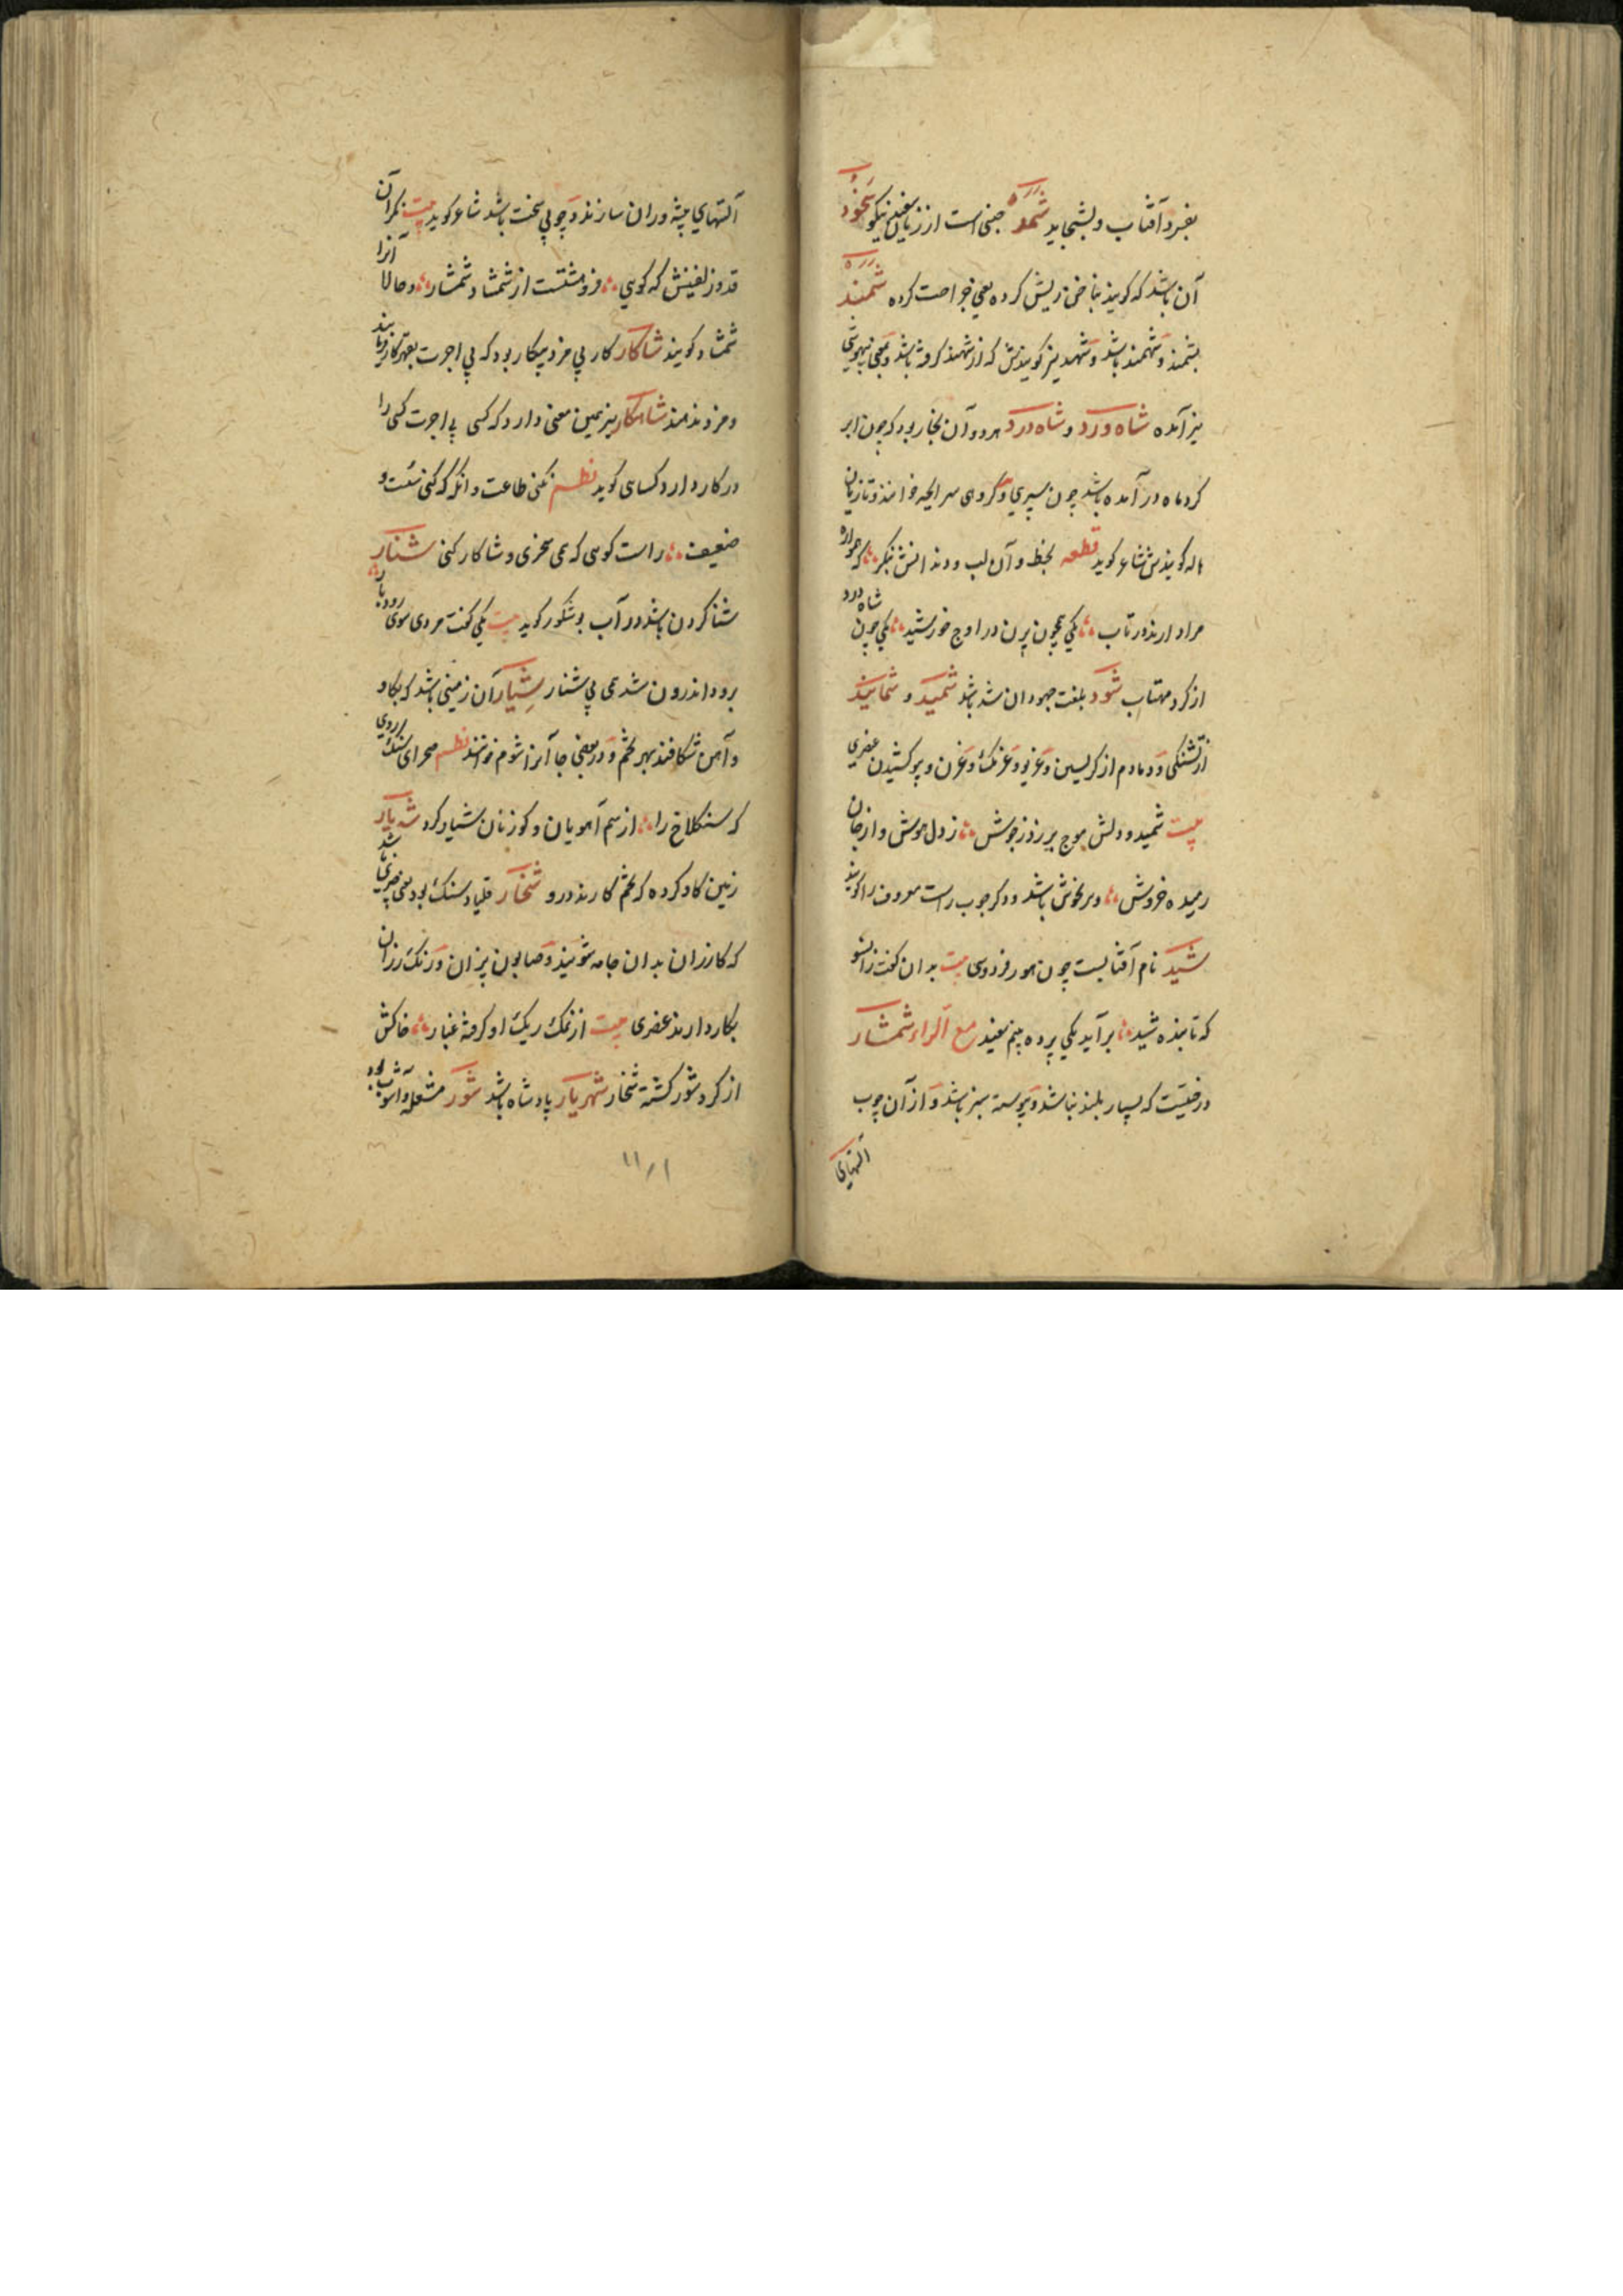 بفبرد آفتاب و بشجاید شمد جنسی است از زیافتن نیکو شخود
آن باشد که گویند بناخن ریش کرده یعنی جراحت کرده شمند
بشمند و شهمند باشد و شهمد نیز گویندش که از شهمند گرفته باشد و بمعنی بیهوشی
نیز آمده شاه ورد و شاه درد هر دو آن بخار بود که چون ابر
گرد ماه در آمده باشد چون سپری و گروهی سرالحیه خوانند و تازیان
هاله گویندش شاعر گوید قطعه بخط و آن لب و دندانش بنگر که همواره
مرا دارند در تاب یکی همچون پرن در اوج خورشید یکی چون شاه درد
از گرد مهتاب شود بلغت جهودان شد باشد شمید و شمانید
از تشنگی و دمادم از گریستن و غریو و غرنگ و غرن و پو کشیدن عنصری
بیت شمید و دلش موج بر زد ز جوش ز دل هوش و از جان
رمیده خروش و بر نخوش باشد و دگر چوب راست معروف را گویند
شید نام آفتابست چون هور فردوسی بیت بدان گفت زانسو
که تابنده شید برآید یکی پرده بینم سفید مع الراء شمشار
درختیست که بسیار بلند نباشد و پیوسته سبز باشد و از آن چوب
آلتهای
آلتهای پیشه وران سازند و چوبی سخت باشد شاعر گوید بیت نگر آن
قد و زلفینش که گویی فروهشتست از شمشاد شمشار و حالا آنرا
شمشاد گویند شاکار کار بی مزد و بیکار بود که بی اجرت بقهر کار فرمایند
و مزد ندهند شاهکار نیز همین معنی دارد که کسی بی اجرت کسی را
در کار دارد کسایی گوید نظم نکنی طاعت و انگه که کنی سست و
ضعیف راست گویی که همی سخری و شاکار کنی شنار
شنا کردن باشد در آب بوشکور گوید بیت یکی گفت مردی سوی رود بار
برود اندرون شد همی بی شنار شیار آن زمینی باشد که بگاو
و آهن شکافند بهر تخم و در بعضی جا آنرا شوم خوانند نظم صحرای سنگ روی
که سنگلاخ را از سم آهویان و گوزنان شیار کرد شدیار
زمین گاو کرده که تخم کارند درو شخار قلیا و سنگ بود یعنی چیزی باشد
که گازران بدان جامه شویند و صابون پزان و رنگ رزان
بکار دارند عنصری بیت از نمک ریگ او گرفته غبار خاکش
از گرد شور گشته شخار شهریار پادشاه باشد شور مشغله و آشوب بود
۱۱٫۱